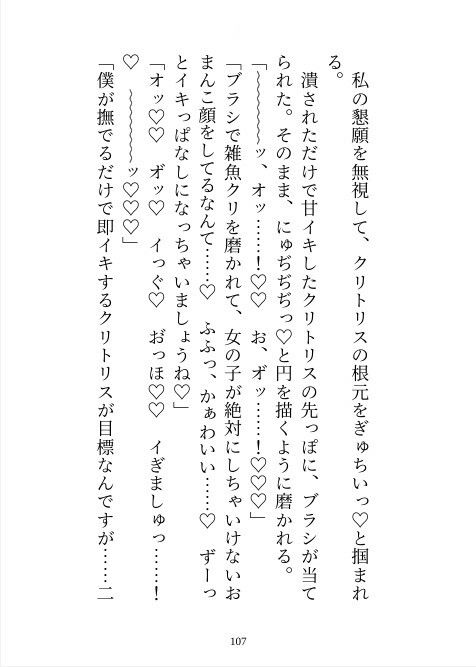 私の懇願を無視して、クリトリスの根元をぎゅちいっ♡と掴まれ
る。
潰されただけで甘イキしたクリトリスの先っぽに、ブラシが当て
られた。そのまま、にゅぢぢぢっ♡と円を描くように磨かれる。
「〜〜〜〜〜ッ、オッ……！♡♡　お、オ゛ッ……！♡♡♡」
「ブラシで雑魚クリを磨かれて、女の子が絶対にしちゃいけないお
まんこ顔をしてるなんて……♡　ふふっ、かぁわいい……♡　ずーっ
とイキっぱなしになっちゃいましょうね♡」
「オッ♡♡　オ゛ッ♡　イっぐ♡　お゛っほ♡♡　イぎましゅっ……！
♡　〜〜〜〜〜ッ♡♡♡」
「僕が撫でるだけで即イキするクリトリスが目標なんですが……二
107